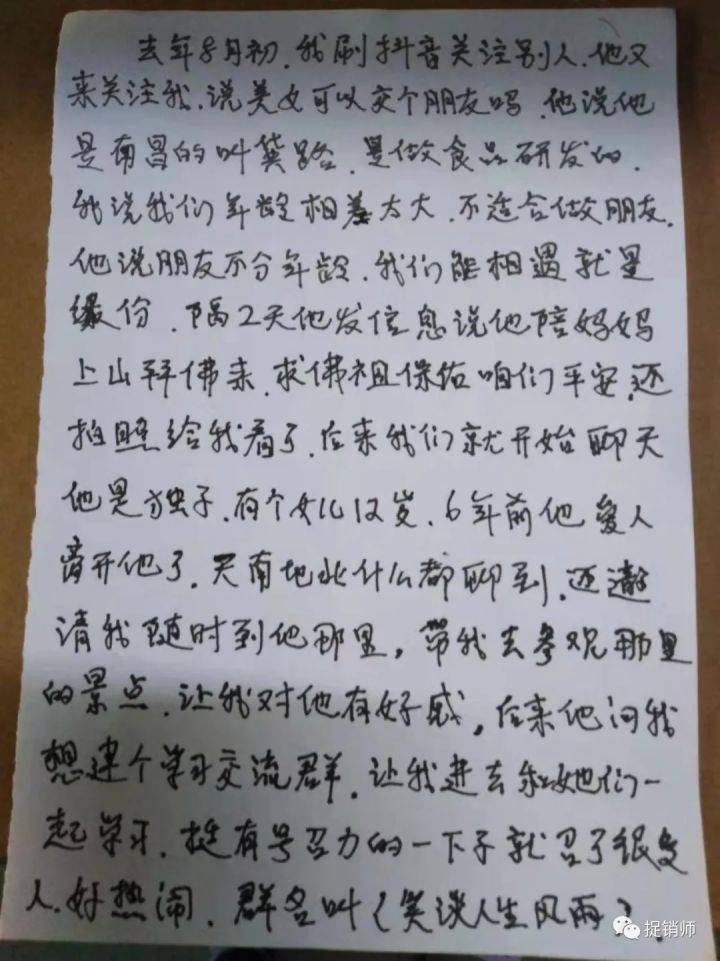 去年8月初,我刷抖音关注别人,他又
来关注我,说美女可以交个朋友吗,他说他
是南昌的叫龚路,是做食品研发的,
我说我们年龄相差太大,不适合做朋友,
他说朋友不分年龄,我们能相遇就是
缘份,隔2天他发信息说他陪妈妈
上山拜佛来,求佛祖保佑咱们平安,还
拍照给我看了,后来我们就开始聊天
他是独子,有个女儿12岁,6年前他爱人
离开他了,天南地北什么都聊到,还邀
请我随时到他那里,带我去参观那里
的景点,让我对他有好感,后来他问我
想建个学习交流群,让我进去和她们一
起学习,挺有号召力的一下子就召了很多
人,好热闹,群名叫(笑谈人生风雨),
捉销师